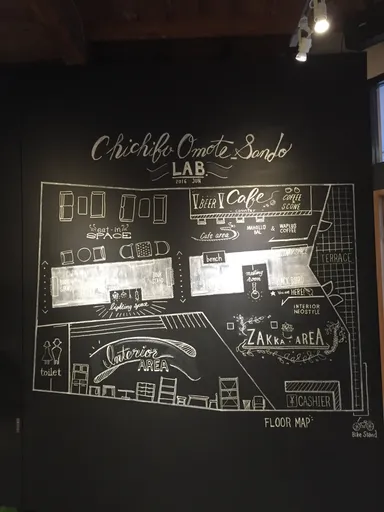 Chichibu Omote Sando
LAB.
2016 JUN
eat-in
SPACE
BEER
Cafe
COFFEE
&
SCONE
Cafe area
&
COFFEE
TERRACE
bench
meeting
room
HERE!
lighting space
INTERIOR
NEOSTYLE
ZAKKA AREA
Interior
AREA
toilet
¥ CASHIER
FLOOR MAP
Bike Stand